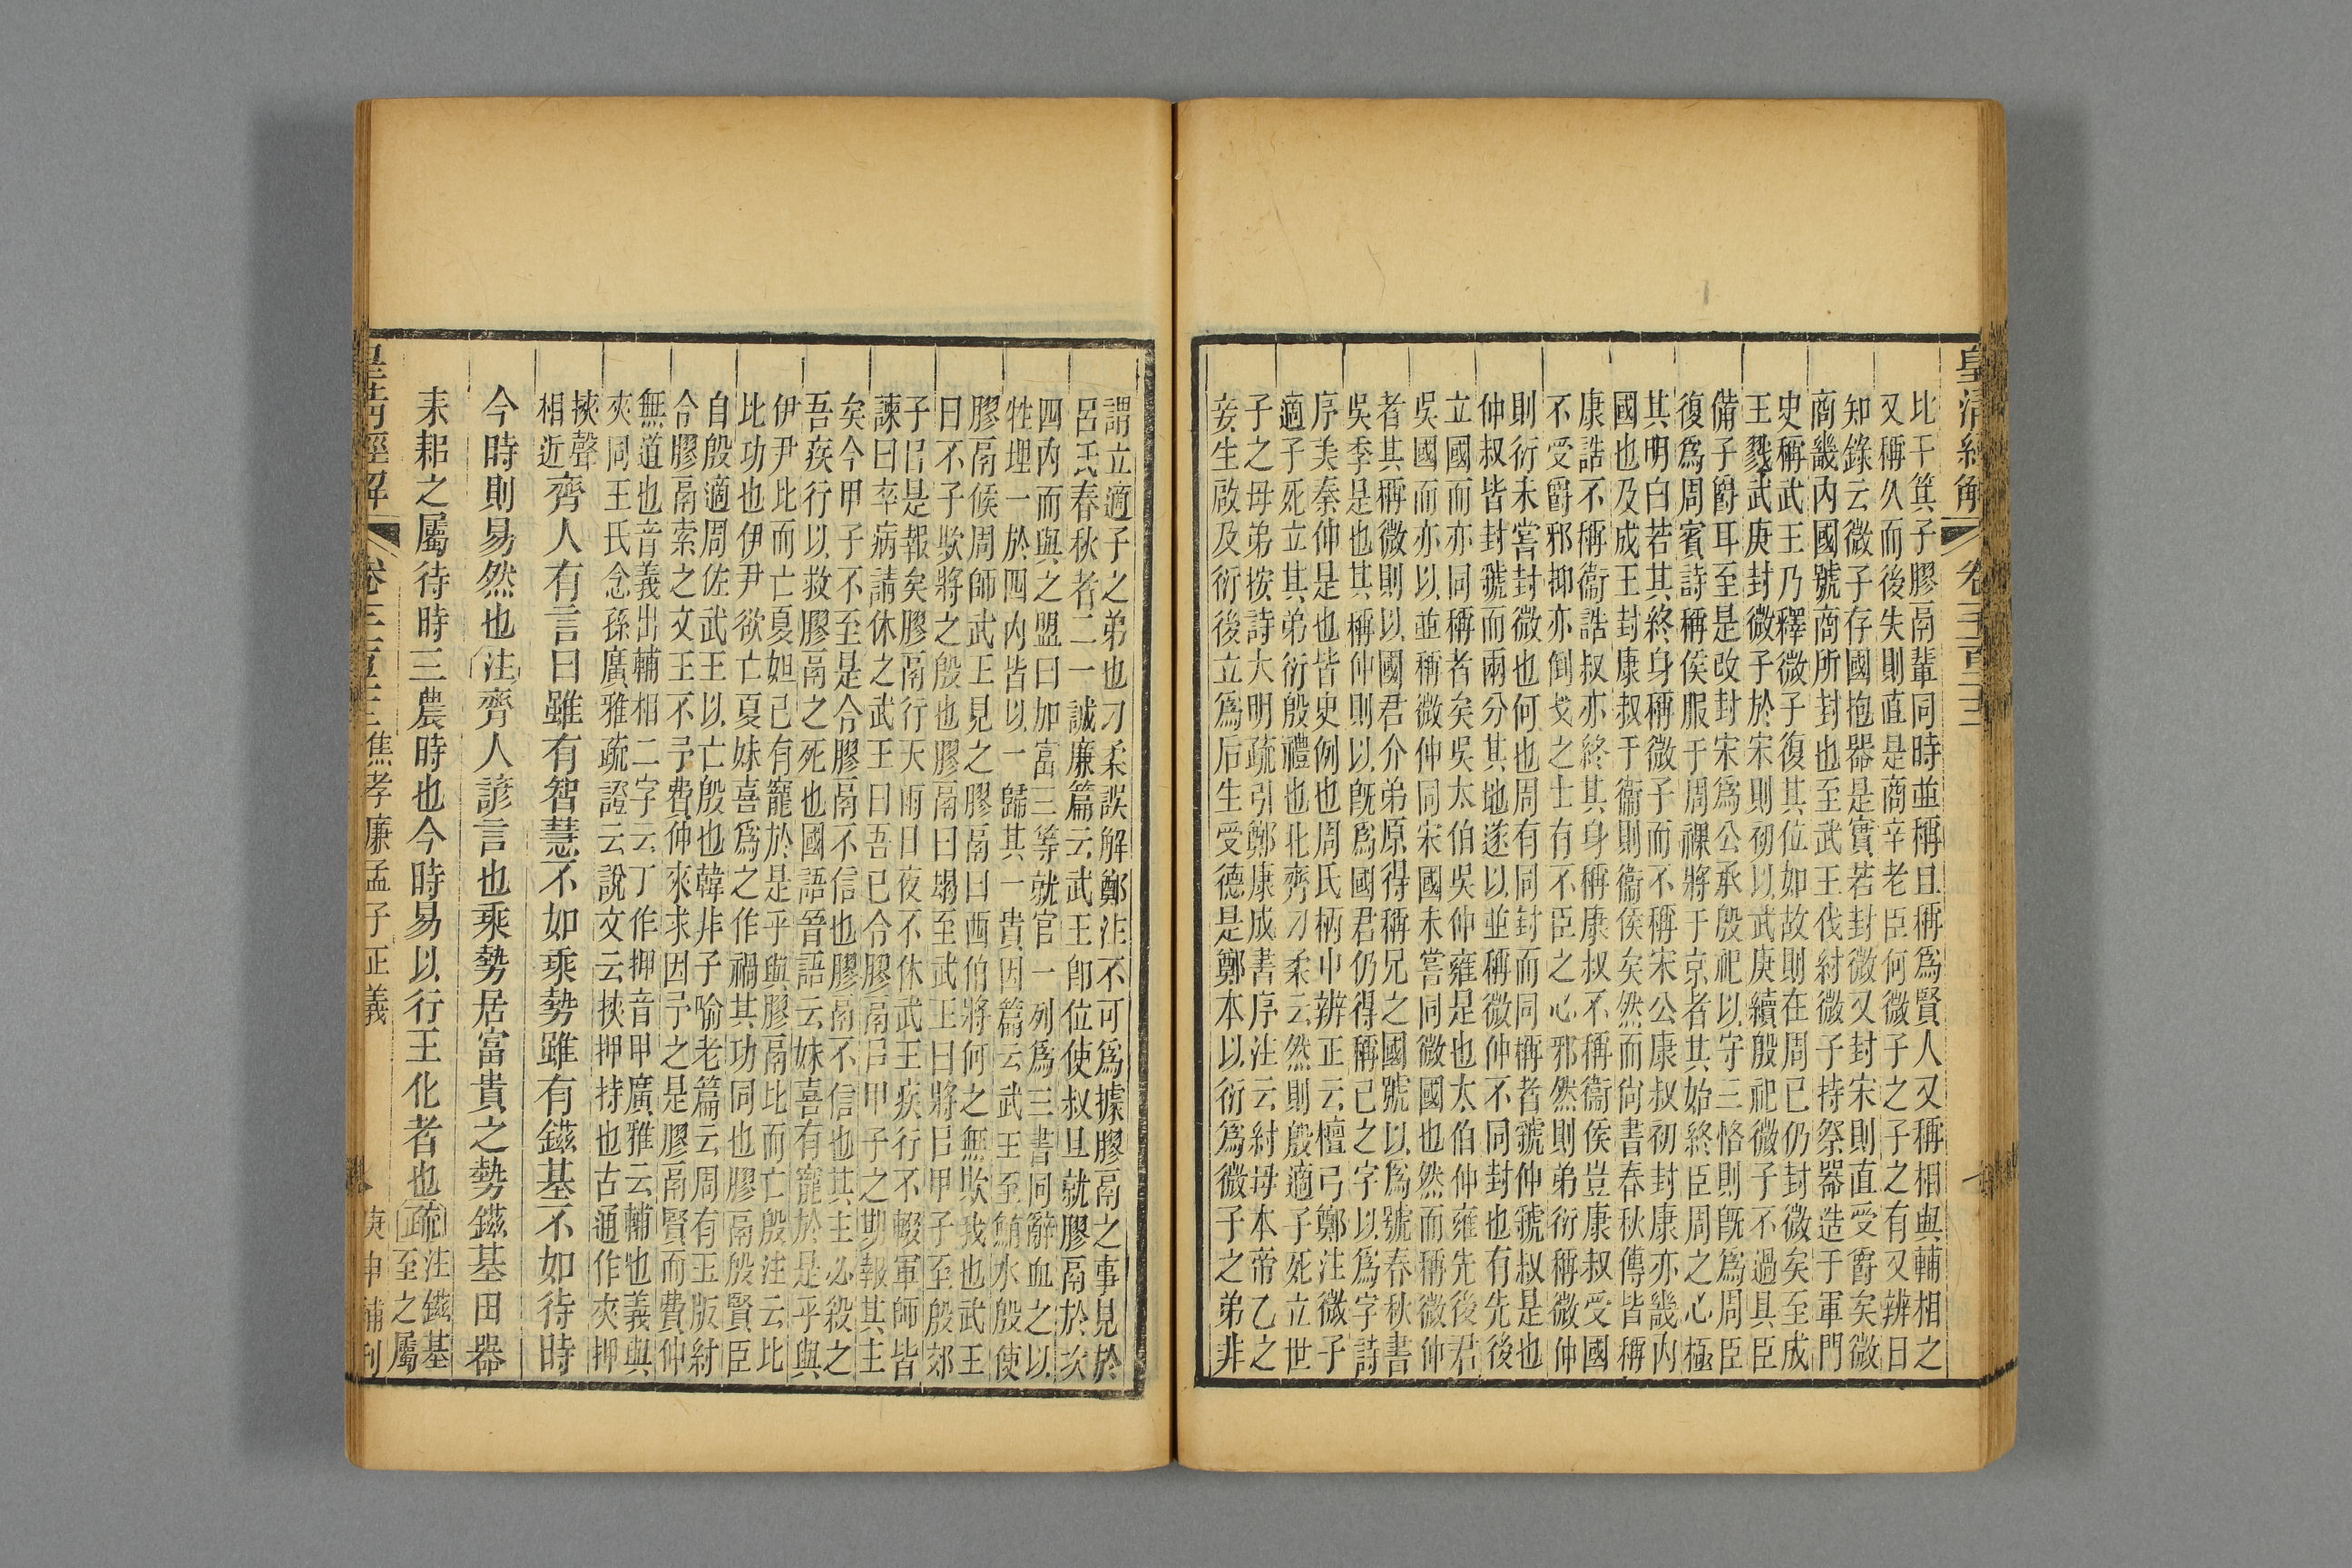 皇清經解
比干箕子膠鬲輩同時並稱且稱爲賢人又稱相與輔相之
又稱久而後失則直是商辛老臣何微子之子之有又辨日
知錄云微子存國抱器是實若封微又封宋則直受爵矣微
商畿内國號商所封也至武王伐紂微子持祭器造于軍門
史稱武王乃釋微子復其位如故則在周已仍封微矣至成
王戮武庚封微子於宋則初以武庚續殷祀微子不過具臣
備子爵耳至是改封宋爲公承殷祀以守三恪則旣爲周臣
復爲周賓詩稱侯服于周祼將于京者其始終臣周之心極
其明白若其終身稱微子而不稱宋公康叔初封康亦畿内
國也及成王封康叔于衞則衞侯矣然而尙書春秋傳皆稱
康誥不稱衞誥叔亦終其身稱康叔不稱衞侯豈康叔受國
不受爵邪抑亦倒戈之士有不臣之心邪然則弟衍稱微仲
則衍未嘗封微也何也周有同封而同稱者虢仲虢叔是也
仲叔皆封虢而兩分其地遂以並稱微仲不同封也有先後
立國而亦同稱者矣吳太伯吳仲雍是也太伯仲雍先後君
吳國而亦以並稱微仲同宋國未嘗同微國也然而稱微仲
者其稱微則以國君介弟原得稱兄之國號以爲號春秋書
吳季是也其稱仲則以旣爲國君仍得稱已之字以爲字詩
序美秦仲是也皆史例也周氏柄中辨正云檀弓鄭注微子
適子死立其弟衍殷禮也北齊刁柔云然則殷適子死立世
子之母弟按詩大明疏引鄭康成書序注云紂母本帝乙之
妾生啟及衍後立爲后生受德是鄭本以衍爲微子之弟非
謂立適子之弟也刁柔誤解鄭注不可爲據膠鬲之事見於
呂氏春秋者二一誠廉篇云武王卽位使叔旦就膠鬲於次
四内而與之盟曰加富三等就官一列爲三書同辭血之以
牲埋一於四内皆以一歸其一貴因篇云武王至鮪水殷使
膠鬲候周師武王見之膠鬲曰西伯將何之無欺我也武王
曰不子欺將之殷也膠鬲曰朅至武王曰將以甲子至殷郊
子㠯是報矣膠鬲行天雨日夜不休武王疾行不輟軍師皆
諫曰卒病請休之武王曰吾已令膠鬲㠯甲子之期報其主
矣今甲子不至是令膠鬲不信也膠鬲不信也其主必殺之
吾疾行以救膠鬲之死也國語晉語云妺喜有寵於是乎與
伊尹比而亡夏妲己有寵於是乎與膠鬲比而亡殷注云比
比功也伊尹欲亡夏妺喜爲之作禍其功同也膠鬲殷賢臣
自殷適周佐武王以亡殷也韓非子喻老篇云周有玉版紂
令膠鬲索之文王不予費仲來求因予之是膠鬲賢而費仲
無道也音義出輔相二字云丁作押音甲廣雅云輔也義與
夾同王氏念孫廣雅疏證云說文云挾押持也古通作夾押
挾聲
相近齊人有言曰雖有智慧不如乘勢雖有鎡基不如待時
今時則易然也注齊人諺言也乘勢居富貴之勢鎡基田器
耒耜之屬待時三農時也今時易以行王化者也疏注鎡基
至之屬
焦孝廉孟子正義
庚申補刊